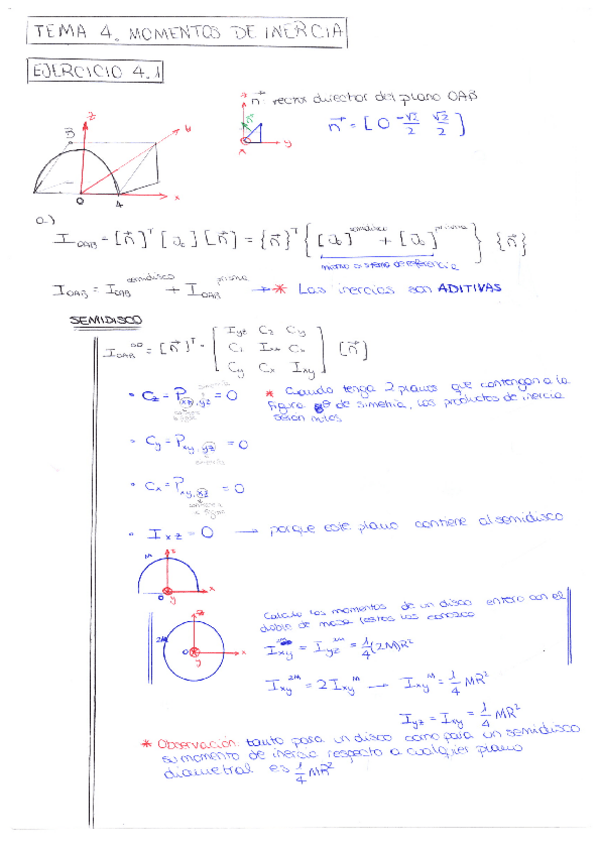 TEMA 4. MOMENTOS DE INERCIA
EJERCICIO 4.1
* n⃗ vector director del plano OAB
n⃗ = [ 0 -√2/2 √2/2 ]
z
B
x
y
O
A
x
a)
I_OAB = [n⃗]^T [J_o] [n⃗] = {n⃗}^T { [J_o]^semidisco + [J_o]^prisma } {n⃗}
mismo sistema de referencia
I_OAB = I_OAB^semidisco + I_OAB^prisma → * Las inercias son ADITIVAS
SEMIDISCO
I_OAB = [n⃗]^T · [ I_yz C_z C_y
C_z I_xz C_x
C_y C_x I_xy ] [n⃗]
• C_z = P_xz,yz = 0
* Cuando tenga 2 planos que contengan a la
figura o de simetría, los productos de inercia
serán nulos
• C_y = P_xy,yz = 0
simetría
• C_x = P_xy,xz = 0
contiene
a figura
• I_xz = 0 → porque este plano contiene al semidisco
M
z
x
O
y
Calculo los momentos de un disco entero con el
doble de masa (estos los conozco)
2M
z
O
x
y
I_xy = I_yz^2M = 1/4 (2M)R²
I_xy^2M = 2 I_xy^M → I_xy^M = 1/4 MR²
I_yz = I_xy = 1/4 MR²
* Observación: tanto para un disco como para un semidisco
su momento de inercia respecto a cualquier plano
diametral es 1/4 MR²